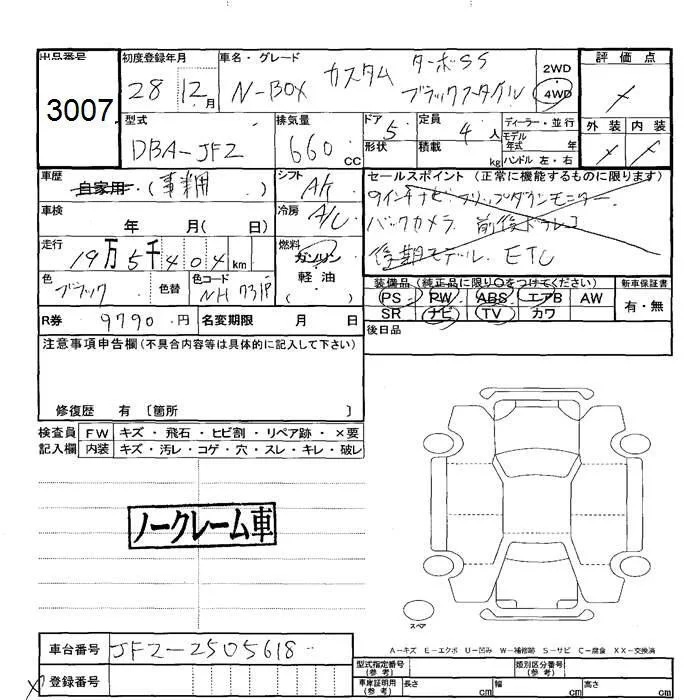 出品番号 3007
初度登録年月 28 12月
車名・グレード N-BOX カスタム ターボSS
ブラックスタイル
2WD・4WD
評価点
外装 内装
型式 DBA-JF2
排気量 660 CC
ドア形状 5
定員 4人
積載 kg
ディーラー・並行
モデル年式 年
ハンドル 左・右
車歴 自家用・(事業用)
シフト A/t
冷房 A/C
セールスポイント (正常に機能するものに限ります)
9インチナビ フリップダウンモニター
バックカメラ 前後ドラレコ
後期モデル ETC
車検 年 月( 日)
走行 19万5千404km
燃料 ガソリン・軽油
色 ブラック 色替
色コード NH 731P
装備品(純正品に限り○をつけてください)
PS PW ABS エアB AW
SR ナビ TV カワ
新車保証書
有・無
R券 9790円 名変期限 月 日
後日品
注意事項申告欄(不具合内容等は具体的に記入して下さい)
修復歴 有〔箇所 〕
検査員 FW キズ・飛石・ヒビ割・リペア跡・×要
記入欄 内装 キズ・汚レ・コゲ・穴・スレ・キレ・破レ
ノークレーム車
スペア
A-キズ E-エクボ U-凹み W-補修跡 S-サビ C-腐食 XX-交換済
車台番号 JF2-2505618
登録番号
型式指定番号(参考) 類別区分番号(参考)
車庫証明用(参考) 長さ cm 幅 cm 高さ cm